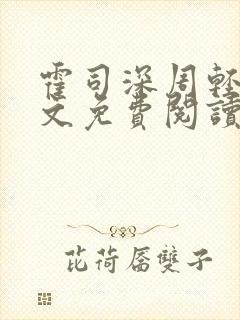 霍司深周輕
文免費閱讀
芘荷屬雙子